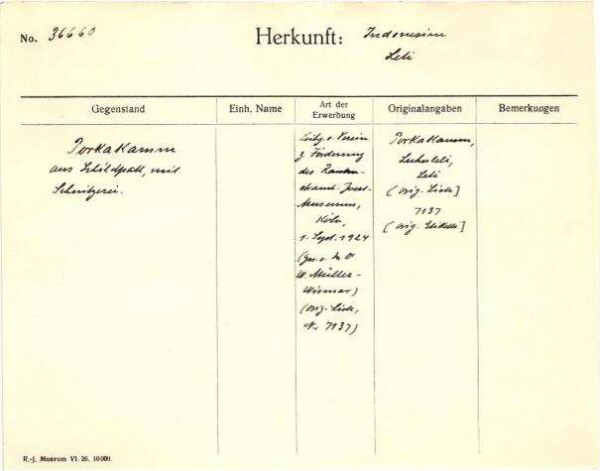 No. 36660
Herkunft: Indonesien
Leti
Gegenstand
Einh. Name
Art der
Erwerbung
Originalangaben
Bemerkungen
Porka Kamm
aus Schildpatt, mit
Schnitzerei.
Leihg. v. Verein
z. Förderung
des Rauten-
strauch-Joest-
Museums,
Köln,
1. Sept. 1924
(ges. v.
W. Müller-
Wismar)
(orig. Liste,
N. 7137)
Porka Kamm,
Leti
(orig. Liste]
7137
(orig. Etikette]
R.-J. Museum VI. 26. 10000.